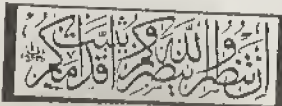 إن تنصروا الله ينصركم ويثبت أقدامكم